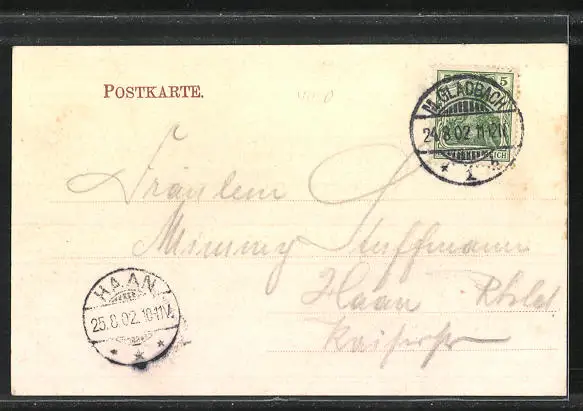 POSTKARTE.
5
M.GLADBACH
24.8.02.11-12V.
REICH
1
h
Fräulein
Mimmy Steffmann
Haan Rhld
HAAN
25.8.02.10-11V.